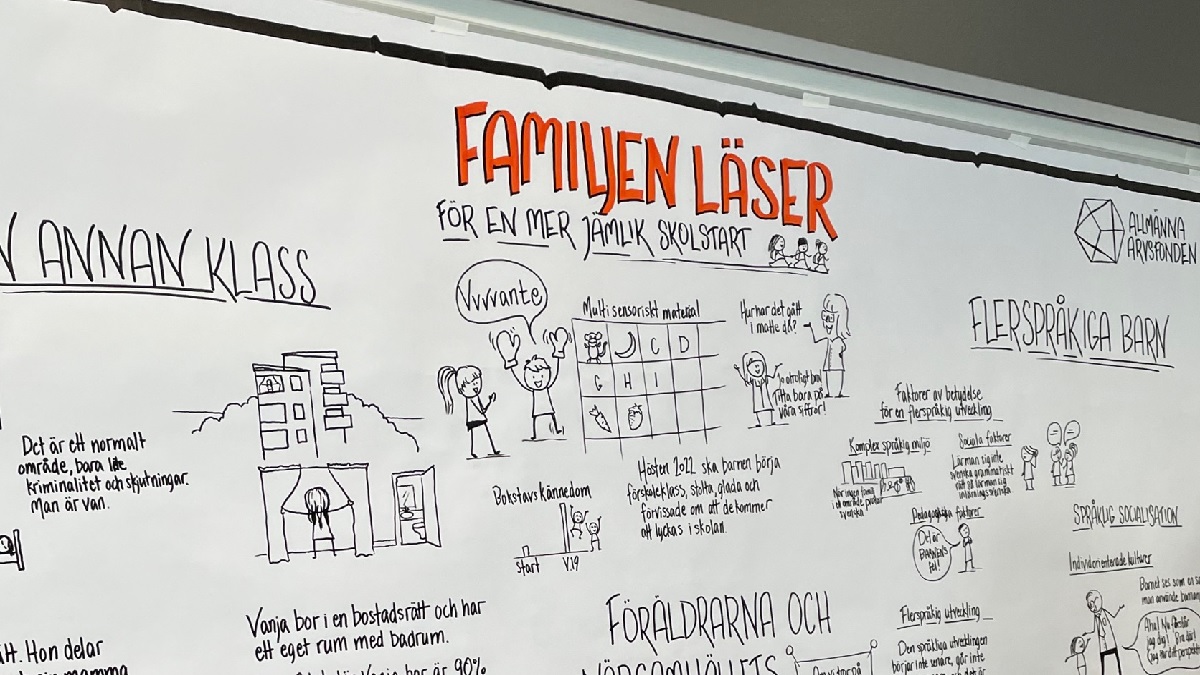 FAMILJEN LÄSER
FÖR EN MER JÄMLIK SKOLSTART
ALLMÄNNA
ARVSFONDEN
N ANNAN KLASS
Det är ett normalt
område, bara lite
kriminalitet och skjutningar.
Man är van.
Vanja bor i en bostadsrätt och har
ett eget rum med badrum.
har är 90%
ätt. Hon delar
mamma
Vvvvante
Multisensoriskt material
C D
G H I
Hur har det gått
i matte då?
Jo otroligt bra!
Titta bara på
våra siffror!
Bokstavskännedom
Start V.19
Hösten 2022 ska barnen börja
förskoleklass, stolta, glada och
förvissade om att de kommer
att lyckas i skolan.
FÖRÄLDRARNA OCH
FLERSPRÅKIGA BARN
Faktorer av betydelse
för en flerspråkig utveckling
Komplex språkig miljö
När ingen familj
i ett område pratar
svenska
Sociala faktorer
Lär man sig inte
svenska grammatiskt
rätt så lär man sig
inlärningssvenska
Pedagogiska faktorer
Det är
BARNENS
fel!
Flerspråkig utveckling
Den språkliga utvecklingen
börjar inte senare, går inte
och det är
SPRÅKLIG SOCIALISATION
Individorienterade kulturer
Barnet ses som en
man använde barnan
Aha! Nu förstår
jag dig!